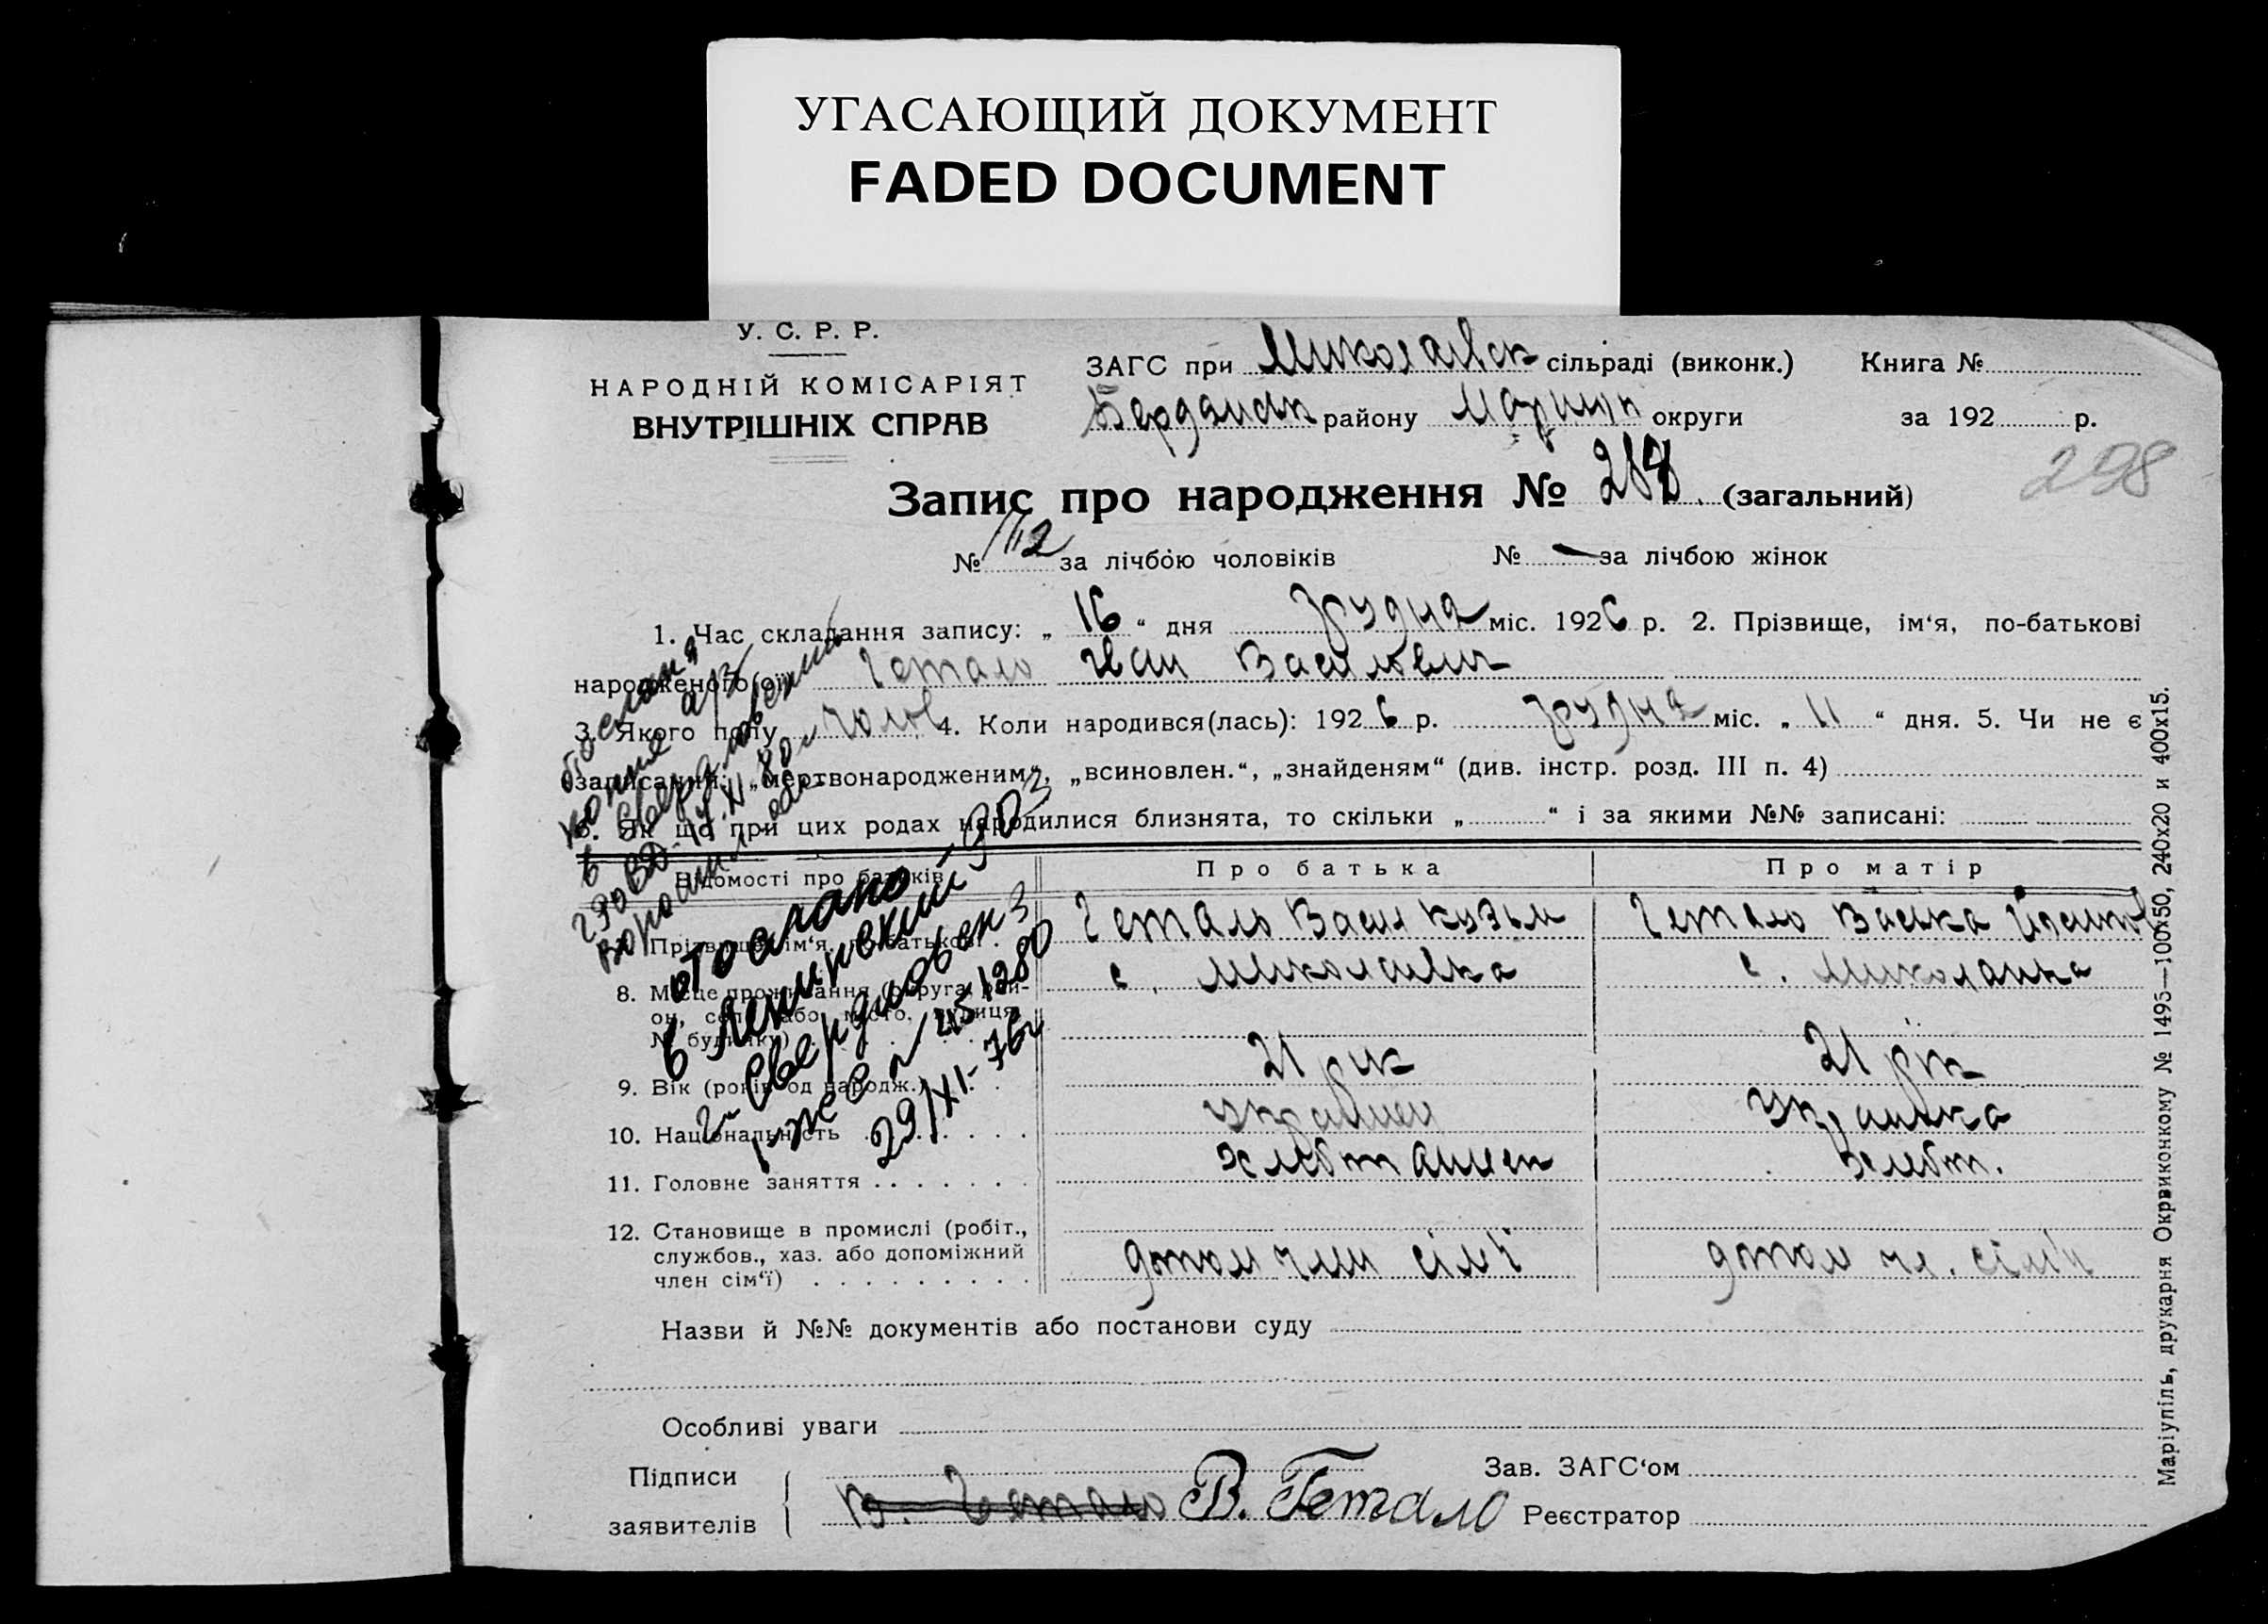 УГАСАЮЩИЙ ДОКУМЕНТ
FADED DOCUMENT
У. С. Р. Р.
НАРОДНІЙ КОМІСАРІЯТ
ВНУТРІШНІХ СПРАВ
ЗАГС при Миколаївск сільраді (виконк.) Книга №
Бердянск району Маріюп округи за 192 р.
298
Запис про народження № (загальний)
№ 112 за лічбою чоловіків № — за лічбою жінок
1. Час складання запису: „ 16 “ дня Грудня міс. 1926 р. 2. Прізвище, ім‘я, по-батькові
народженого(ої) Гетало Іван Васильович
3. Якого полу чолов 4. Коли народився(лась): 1926 р. Грудня міс. „ 11 “ дня. 5. Чи не є
записаний: „мертвонародженим“, „всиновлен.“, „знайденям“ (див. інстр. розд. III п. 4)
6. Як що при цих родах народилися близнята, то скільки „ “ і за якими №№ записані:
Відомості про батьків Про батька Про матір
7. Прізвище, ім‘я, по-батькові Гетало Васил Кузьм Гетало
8. Місце проживання (округа, рай-
он, село або місто, вулиця,
№ будинку)
с. Миколаївка с. Миколаивка
9. Вік (років од народж.) 21 рік 21 рік
10. Національність українец українка
11. Головне заняття хлібопашец хлебоп.
12. Становище в промислі (робіт.,
службов., хаз. або допоміжний
член сім‘ї)
допом член сім'ї допом чл. сім'ї
Назви й №№ документів або постанови суду
Особливі уваги
Підписи
заявителів
В. Гетало В. Гетало
Зав. ЗАГС‘ом
Реєстратор
послана
копия а/з
в Свердловский
отослано
в Ленинский
г. Свердловск
29/XI-76г
Маріупіль, друкарня Окрвиконкому № 1495—100х50, 240х20 и 400х15.